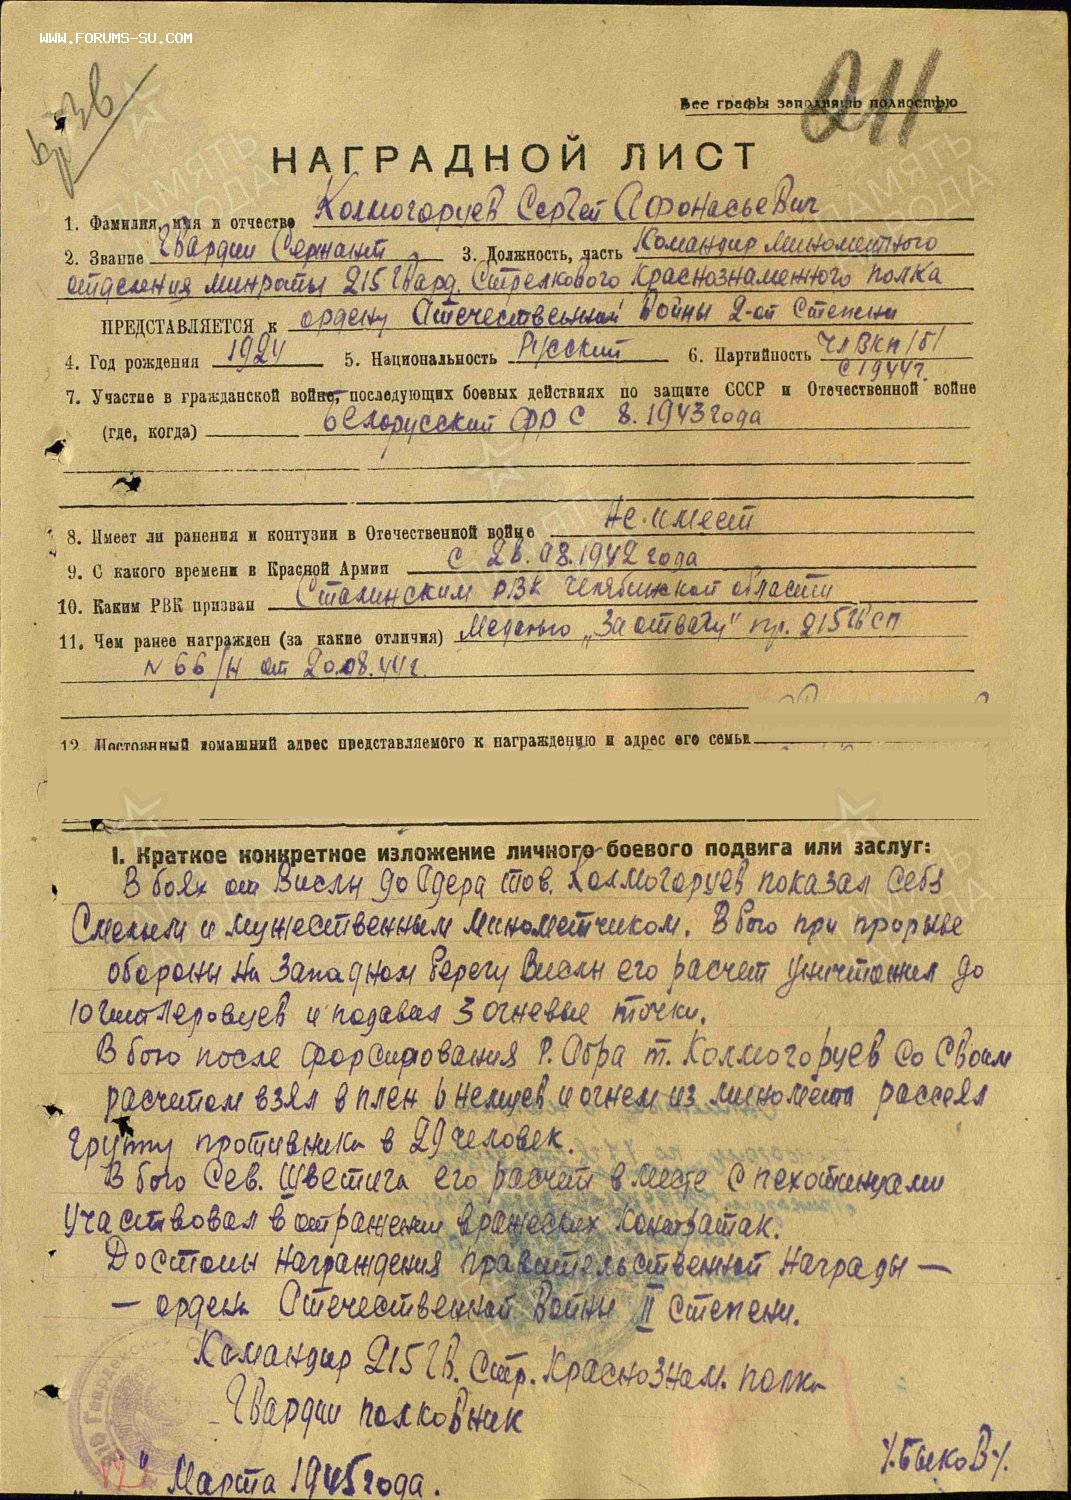 WWW.FORUMS-SU.COM
Все графы заполнять полностью
211.
НАГРАДНОЙ ЛИСТ
1. Фамилия, имя и отчество Колмогорцев Сергей Афонасьевич
2. Звание Гвардии Сержант 3. Должность, часть Командир миномётного
отделения минроты 215 Гвард. Стрелкового Краснознаменного полка
ПРЕДСТАВЛЯЕТСЯ к ордену Отечественной Войны 2-ой Степени
4. Год рождения 1924 5. Национальность Русский 6. Партийность Чл ВКП/б/
с 1944г.
7. Участие в гражданской войне, последующих боевых действиях по защите СССР и Отечественной войне
(где, когда) Белорусский фр с 8.1943 года
8. Имеет ли ранения и контузии в Отечественной войне Не имеет
9. С какого времени в Красной Армии с 28.08.1942 года
10. Каким РВК призван Сталинским РВК Челябинской области
11. Чем ранее награжден (за какие отличия) Медалью „За отвагу" пр. 215 гв СП
N 66/н от 20.08.44г.
12. Постоянный домашний адрес представляемого к награждению и адрес его семьи
I. Краткое конкретное изложение личного боевого подвига или заслуг:
В боях от Вислы до Одера тов. Колмогорцев показал себя
Смелым и мужественным миномётчиком. В бою при прорыве
обороны на Западном берегу Вислы его расчет уничтожил до
10 гитлеровцев и подавил 3 огневые точки.
В бою после форсирования р. Обра т. Колмогорцев со своим
расчетом взял в плен 6 немцев и огнем из миномёта рассеял
группу противника в 29 человек.
В бою Сев. Шветига его расчет вместе с пехотинцами
участвовал в отражении вражеских контратак.
Достоин награждения правительственной награды —
— орден Отечественной Войны II степени.
Командир 215 Гв. Стр. Краснознам. полка
Гвардии полковник
/Быков/.
" Марта 1945 года.